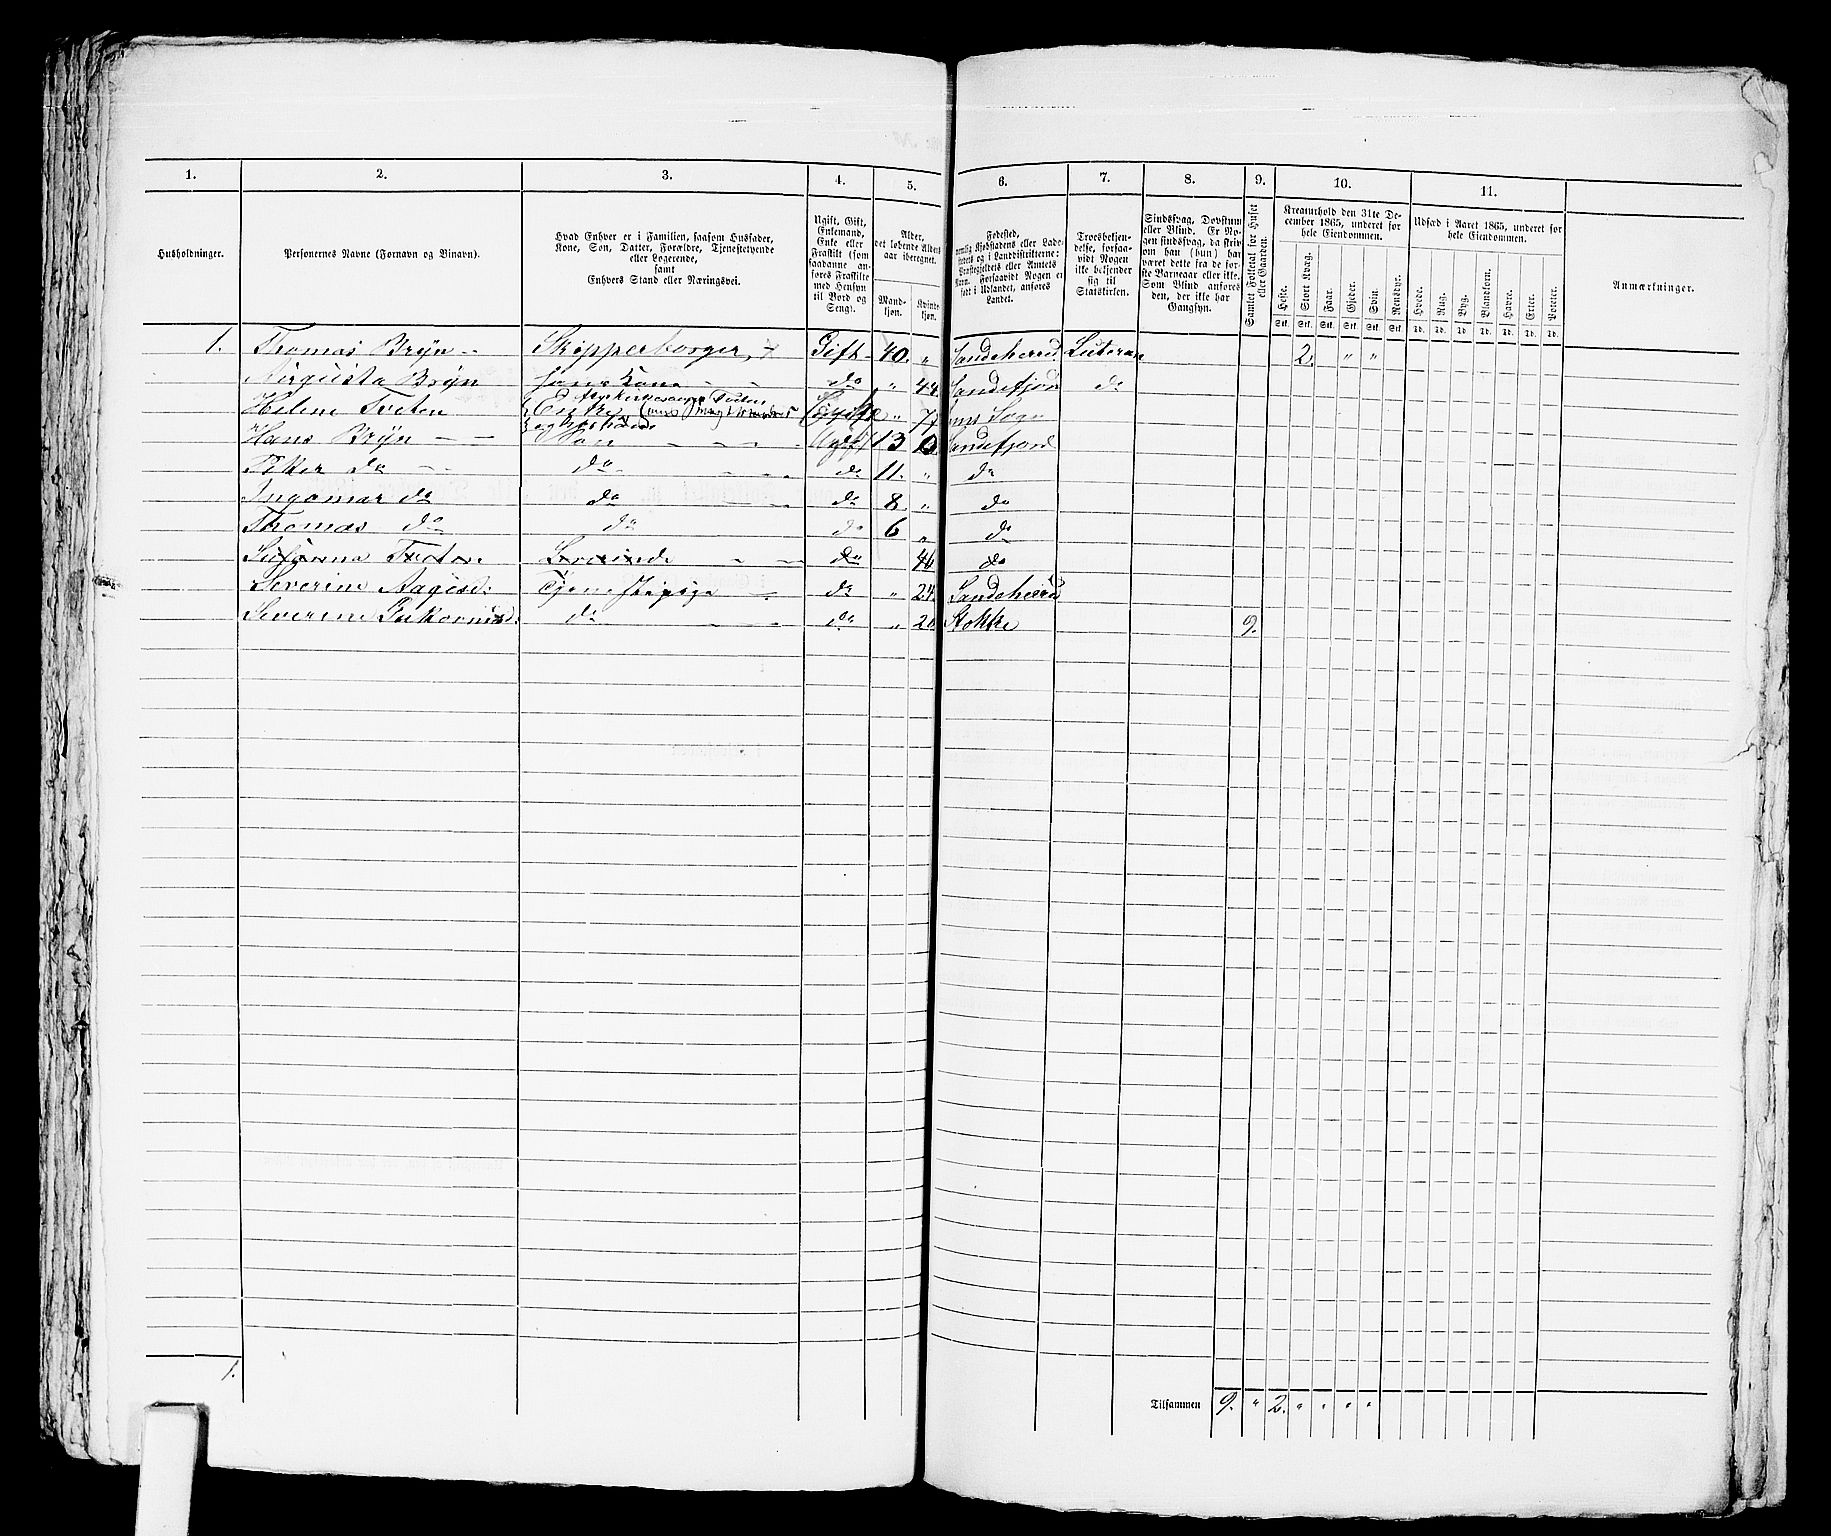 1. 2. 3. 4. 5. 6. 7. 8. 9. 10. 11.
Husholdninger.
Personernes Navne (Fornavn og Binavn).
Hvad Enhver er i Familien, saasom Husfader,
Kone, Søn, Datter, Forældre, Tjenestetyende
eller Logerende,
samt
Enhvers Stand eller Næringsvei.
Ugift, Gift,
Enkemand,
Enke eller
Fraskilt (som
saadanne an-
føres Fraskilte
med Hensyn
til Bord og
Seng).
Alder,
det løbende Alders-
aar iberegnet.
Mand-
kjøn.
Kvinde-
kjøn.
Fødested,
nemlig Kjøbstadens eller Lade-
stedets og i Landdistrikterne:
Præstegjeldets eller Amtets
Navn. Forsaavidt Nogen er
født i Udlandet, anføres
Landet.
Troesbekjen-
delse, forsaa-
vidt Nogen
ikke bekjender
sig til
Statskirken.
Sindssvag, Døvstum
eller Blind. Er No-
gen sindssvag, da skriv
om han (hun) har
været dette fra de før-
ste Barneaar eller ikke.
Som Blind anføres
den, der ikke har
Gangsyn.
Samlet Folketal for Huset
eller Gaarden.
Kreaturhold den 31te De-
cember 1865, underet for
hele Eiendommen.
Heste. Stort Kvæg. Faar. Gjeder. Sviin. Rensdyr.
Stk. Stk. Stk. Stk. Stk. Stk.
Udsæd i Aaret 1865, underet for
hele Eiendommen.
Hvede. Rug. Byg. Blandkorn. Havre. Erter. Poteter.
Td. Td. Td. Td. Td. Td. Td.
Anmærkninger.
1. Thomas Bryn - - Skipperborger, Gift - 40. „ Sandeherred Luteran 2. „ „
Augusta Bryn hans Kone - - do „ 44 Sandefjord do
Helene Tveten Enke „ 77 Sogn
Hans Bryn - - Søn - - - 13 Sandefjord
Peter do - - do - - - do 11. „ do
Ingomar do do - - do 8. „ do
Thomas do do do 6 „ do
Tveten Logerinde - - - do 46 do
Severine Aagesd: Tjeneste pige - do „ 24. Sandeherred
Severine do - - do „ Stokke 9.
1.
Tilsammen 9. „ 2. „ „ „ „